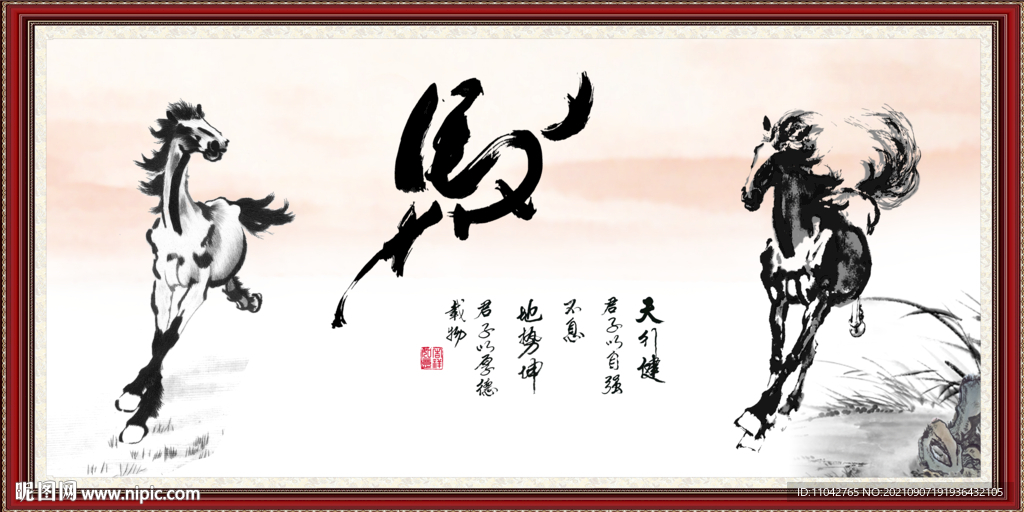 馬
天行健
君子以自强
不息
地勢坤
君子以厚德
載物
昵图网 www.nipic.com
ID:11042765 NO:20210907191936432105